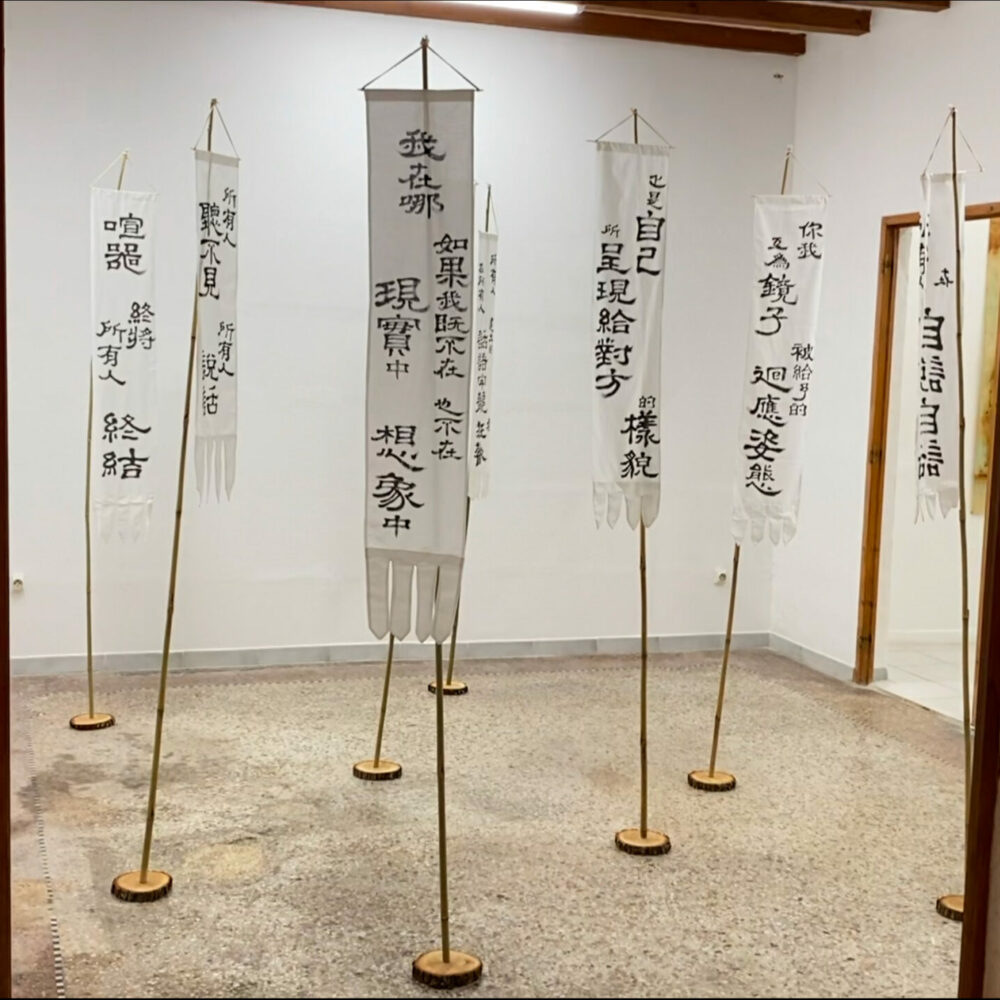 喧囂
終將
所有人
終結
所有人
聽不見
所有人
說話
我在哪
如果我既不在
現實中
也不在
想象中
所有人
在所有人
也是
自己
所
呈現給對方
的
樣貌
你我
互為
鏡子
被給予的
迴應姿態
在
自說自話